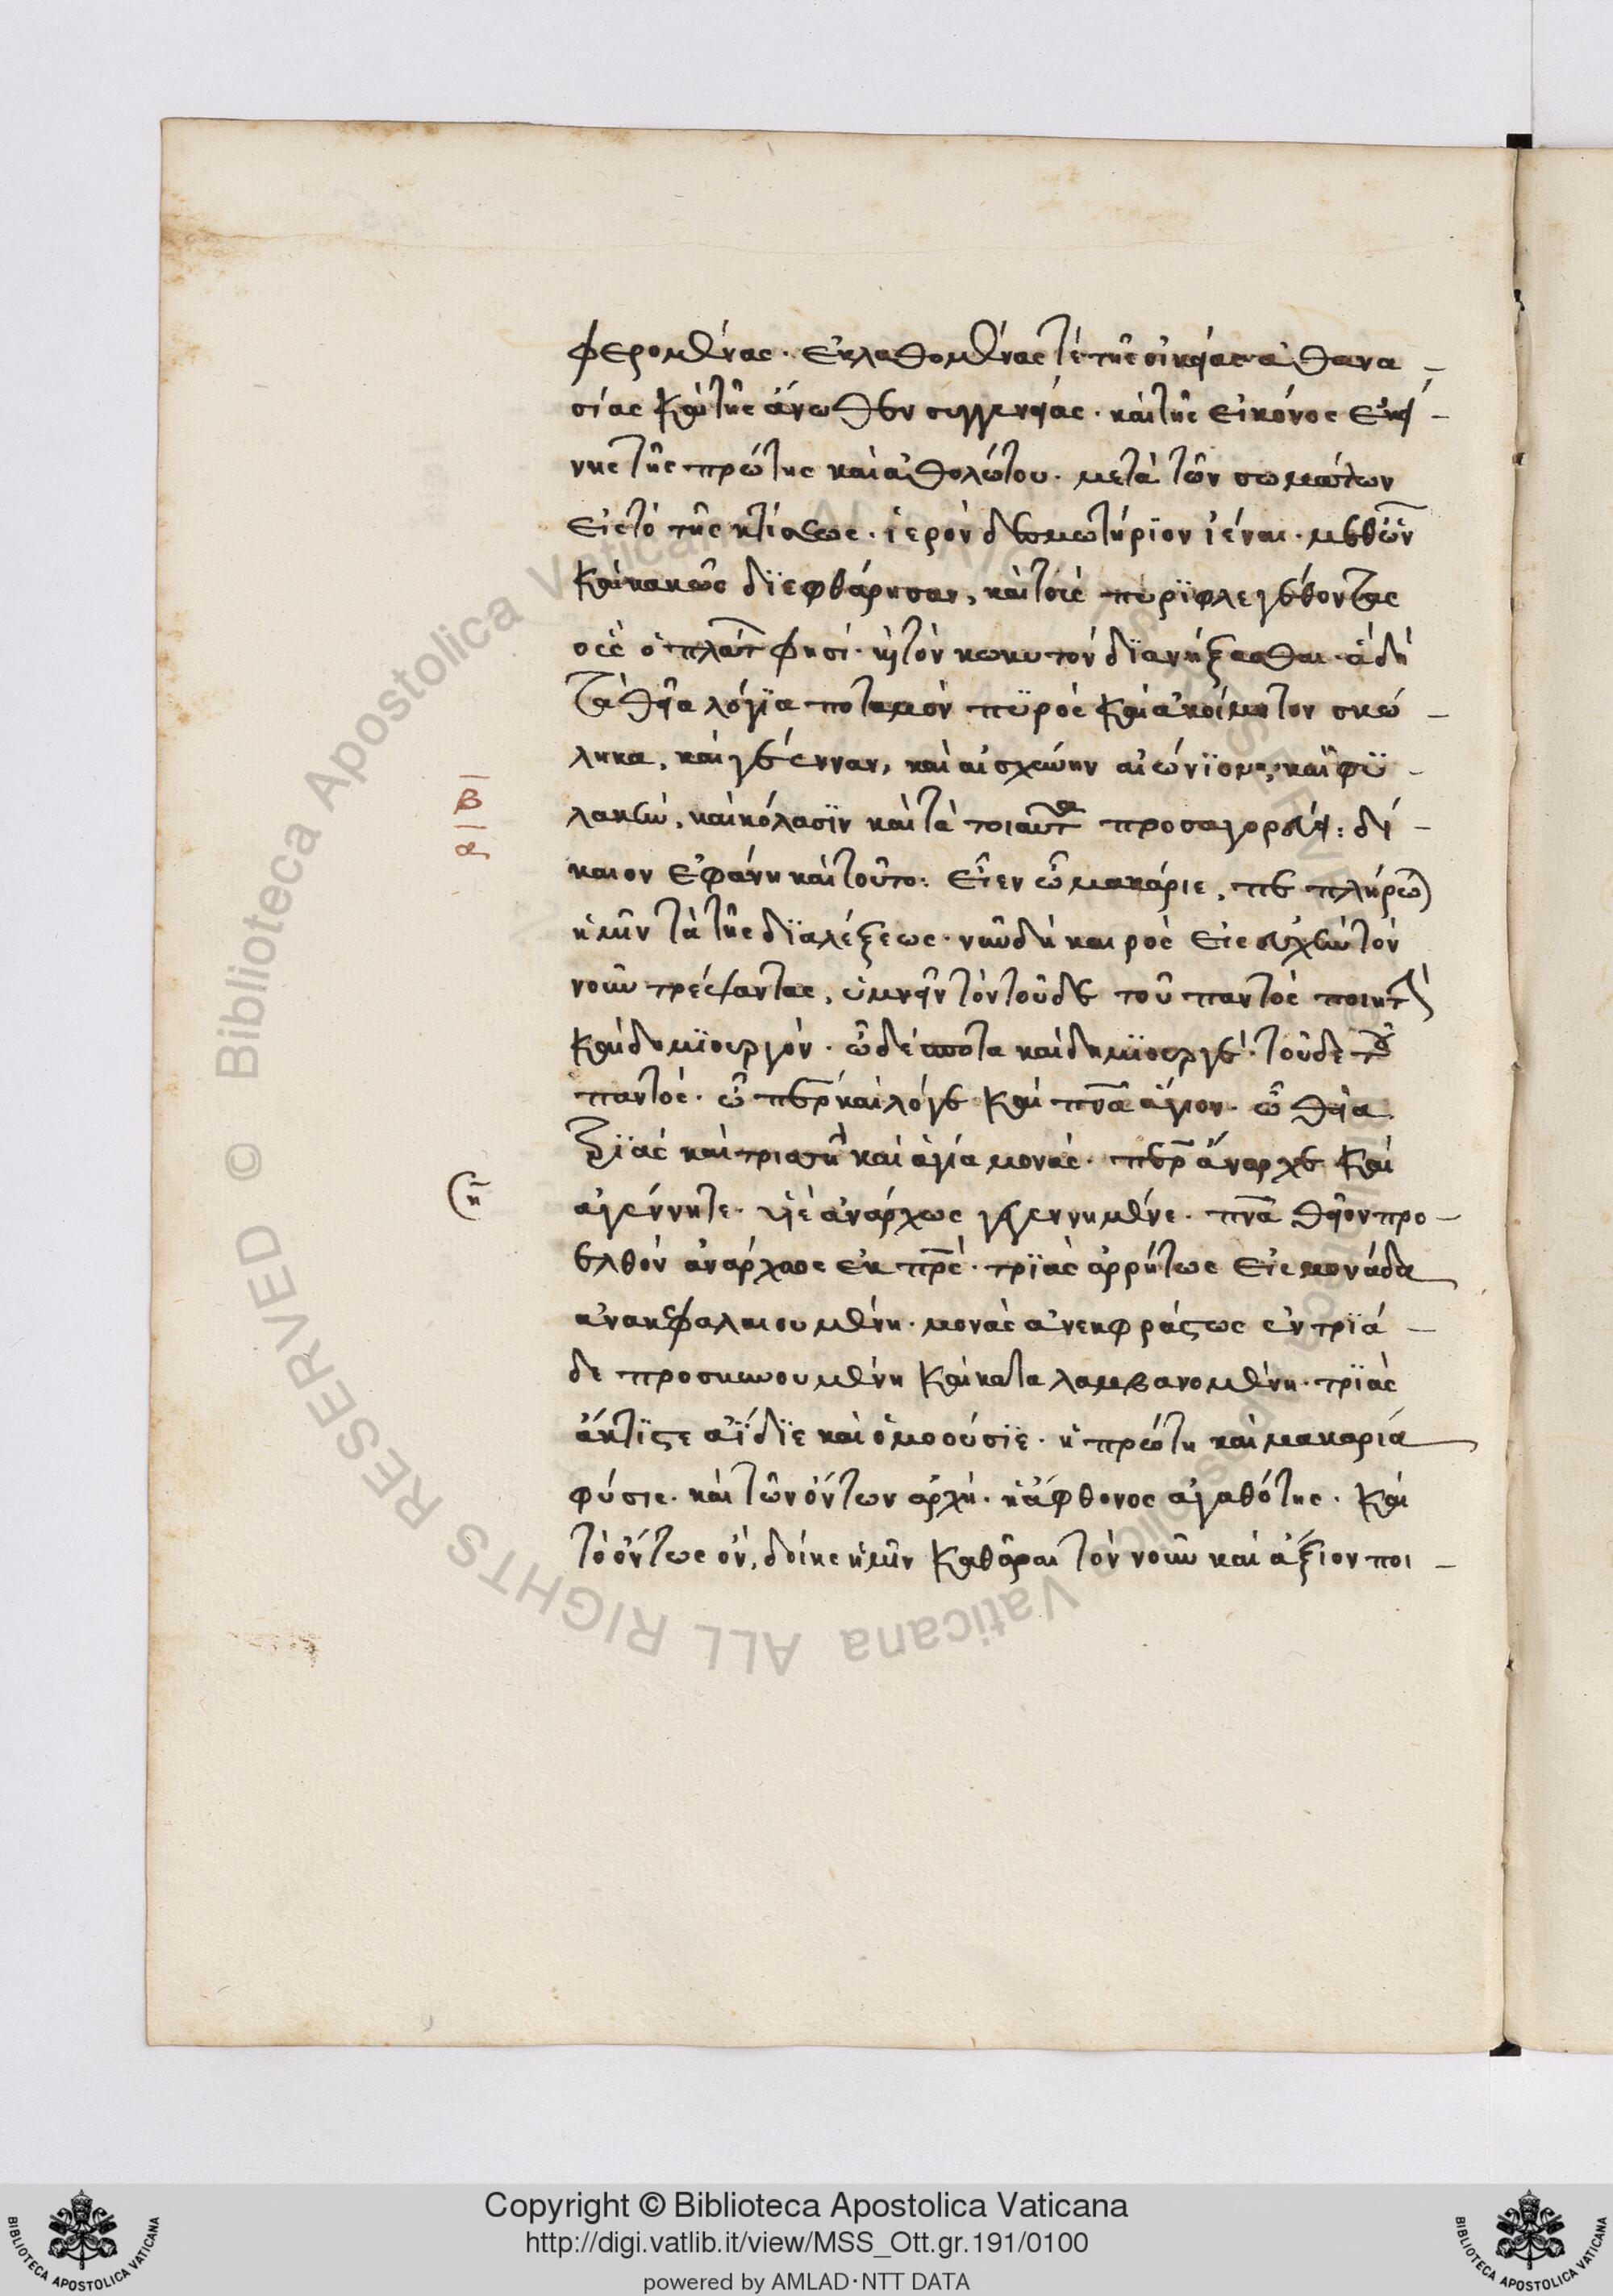 φερομένας· ἐκλαθομένας τὲ τῆς οἰκείας ἀθανα-
σίας καὶ τῆς ἄνωθεν συγγενείας· καὶ τῆς εἰκόνος ἐκεί-
νης τῆς πρώτης καὶ ἀθολώτου· μετὰ τῶν σωμάτων
εἰς τὸ τῆς κτίσεως· ἱερὸν δεσμωτήριον ἰέναι· μεθ' ὧν
καὶ κακῶς διεφθάρησαν, καὶ τοὺς πυριφλεγέθοντας
οὓς ὁ πλατ φησί· κ τὸν κωκυτόν διανήξασθαι· ἃ δὴ
τὰ θεῖα λόγια ποταμὸν πυρὸς καὶ ἀκοίμητον σκώ-
ληκα, καὶ γέενναν, καὶ αἰσχύνην αἰώνιον, καὶ φυ-
λακὴν, καὶ κόλασιν καὶ τὰ τοιαῦτα προσαγορεύει: δί-
β
α
καιον ἐφάνη καὶ τοῦτο: εἶεν ὦ μακάριε, πεπλήρω)
ἡμῖν τὰ τῆς διαλέξεως· νῦν δὴ καιρὸς εἰς εὐχὴν τὸν
νοῦν τρέψαντας, ὑμνεῖν τὸν τοῦδε τοῦ παντὸς ποιητ
καὶ δημιουργόν· ὦ δέσποτα καὶ δημιουργέ· τοῦδε τοῦ
παντός· ὦ περ καὶ λόγε καὶ πνα ἅγιον· ὦ θεία
τριὰς καὶ τριαττὴ καὶ ἁγία μονάς· περ ἄναρχε καὶ
η
ἀγέννητε· υἱὲ ἀνάρχως γεγεννημένε· πνα θεῖον προ-
ελθὸν ἀνάρχως ἐκ πρς· τριὰς ἀρρήτως εἰς μονάδα
ἀνακεφαλαιουμένη· μονὰς ἀνεκφράστως ἐν τριά-
δι προσκυνουμένη καὶ καταλαμβανομένη· τριὰς
ἄκτιστε ἀΐδιε καὶ ὁμοούσιε· ἡ πρώτη καὶ μακαρία
φύσις· καὶ τῶν ὄντων ἀρχὴ· ἡ ἄφθονος ἀγαθότης· καὶ
τὸ ὄντως ὄν, δοίης ἡμῖν καθᾶραι τὸν νοῦν καὶ ἄξιον ποι-
© Biblioteca Apostolica Vaticana ALL RIGHTS RESERVED
Copyright © Biblioteca Apostolica Vaticana
http://digi.vatlib.it/view/MSS_Ott.gr.191/0100
powered by AMLAD·NTT DATA
BIBLIOTECA APOSTOLICA VATICANA
BIBLIOTECA APOSTOLICA VATICANA